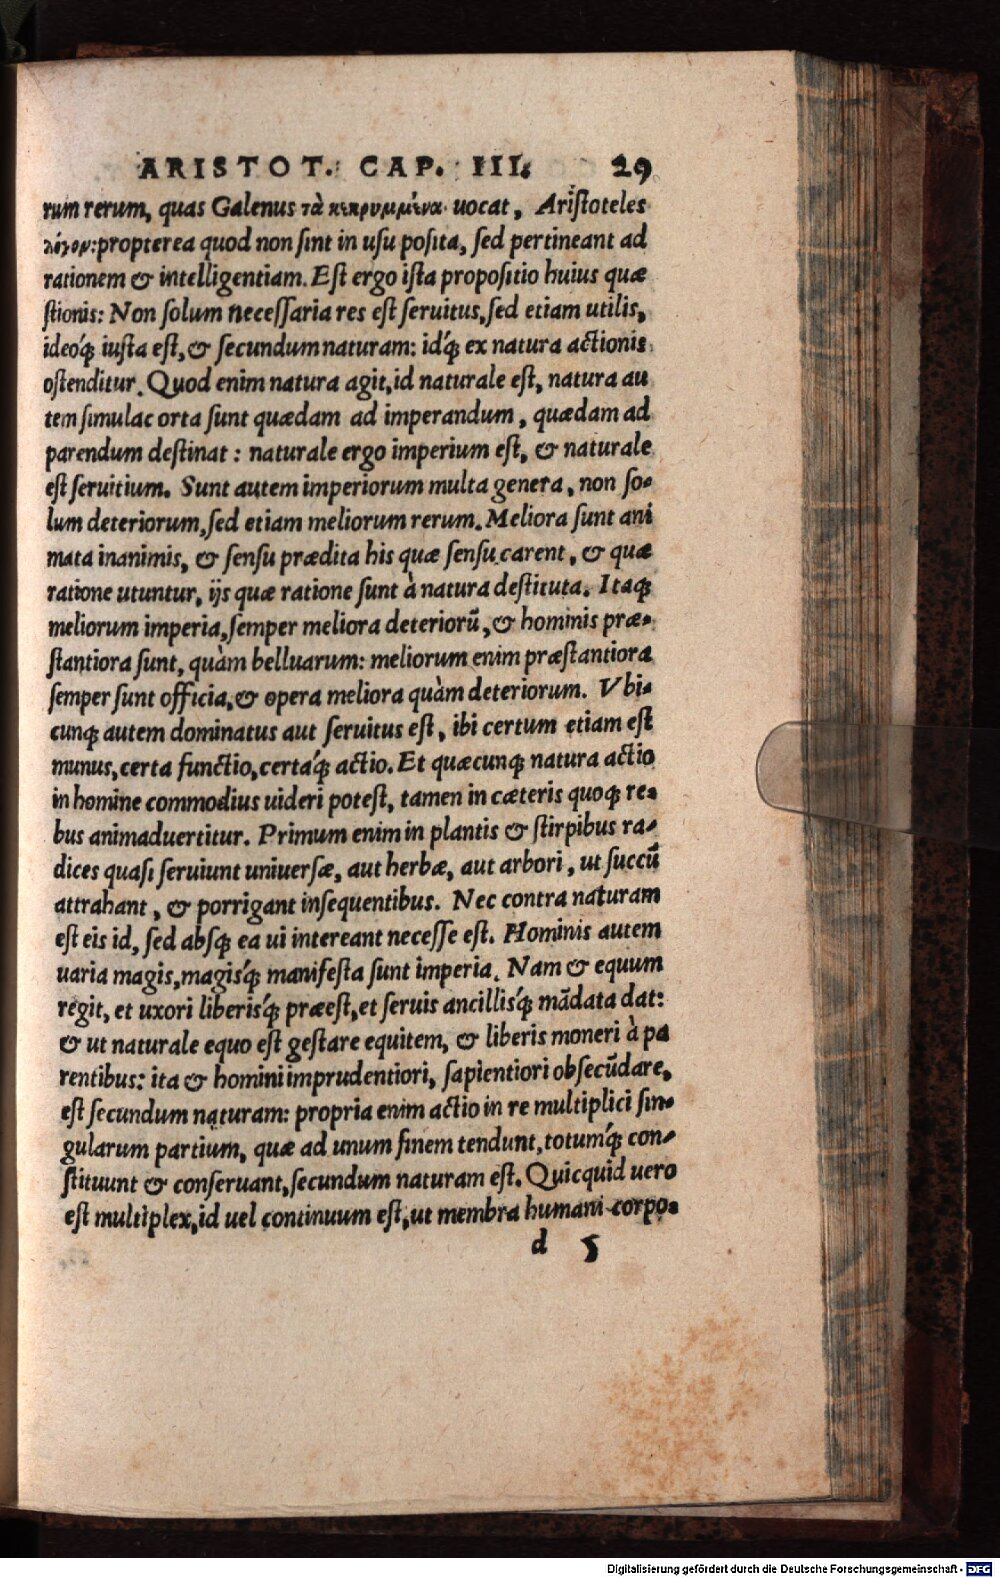 ARISTOT. CAP. III. 29
rum rerum, quas Galenus τὰ κεκρυμμένα uocat, Aristoteles
λόγον: propterea quod non sint in usu posita, sed pertineant ad
rationem & intelligentiam. Est ergo ista propositio huius quæ
stionis: Non solum necessaria res est seruitus, sed etiam utilis,
ideóq; iusta est, & secundum naturam: idq́; ex natura actionis
ostenditur. Quod enim natura agit, id naturale est, natura au
tem simulac orta sunt quædam ad imperandum, quædam ad
parendum destinat: naturale ergo imperium est, & naturale
est seruitium. Sunt autem imperiorum multa genera, non so-
lum deteriorum, sed etiam meliorum rerum. Meliora sunt ani
mata inanimis, & sensu prædita his quæ sensu carent, & quæ
ratione utuntur, ijs quæ ratione sunt à natura destituta. Itaq;
meliorum imperia, semper meliora deteriorũ, & hominis præ-
stantiora sunt, quàm belluarum: meliorum enim præstantiora
semper sunt officia, & opera meliora quàm deteriorum. Vbi-
cunq; autem dominatus aut seruitus est, ibi certum etiam est
munus, certa functio, certáq; actio. Et quæcunq; natura actio
in homine commodius uideri potest, tamen in cæteris quoq; re-
bus animaduertitur. Primum enim in plantis & stirpibus ra-
dices quasi seruiunt uniuersæ, aut herbæ, aut arbori, ut succũ
attrahant, & porrigant insequentibus. Nec contra naturam
est eis id, sed absq; ea ui intereant necesse est. Hominis autem
uaria magis, magisq́; manifesta sunt imperia. Nam & equum
regit, et uxori liberisq́; præest, et seruis ancillisq́; mãdata dat:
& ut naturale equo est gestare equitem, & liberis moneri à pa
rentibus: ita & homini imprudentiori, sapientiori obsecũdare,
est secundum naturam: propria enim actio in re multiplici sin-
gularum partium, quæ ad unum finem tendunt, totumq́; con-
stituunt & conseruant, secundum naturam est. Quicquid uero
est multiplex, id uel continuum est, ut membra humani corpo-
d 5
Digitalisierung gefördert durch die Deutsche Forschungsgemeinschaft - DFG